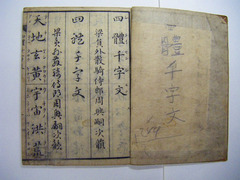 體千字文
四體千字文
梁員外散騎侍郎周興嗣次韻
四體千字文
梁員外散騎侍郎周興嗣次韻
天地玄黃宇宙洪荒